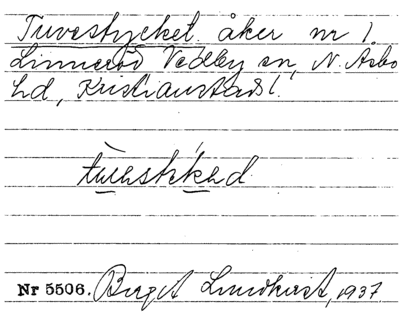 Tuvestycket åker nr 1
Linneröd Vedby sn, N. Åsbo
hd, Kristianstads l.
tuvəstikəd
Nr 5506. Birgit Lindkvist, 1937.